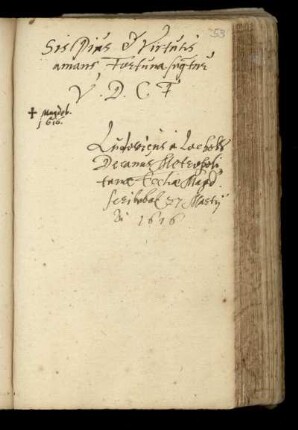 53
Sis Pius & Virtutis
amans Fortuna sequetur
V. D. C F
+ Magdeb.
1616.
Ludovicus a Lochow
Decanus Metropoli
tanæ Eccliæ Magd
scribebat 27 Martij
Aº 1616